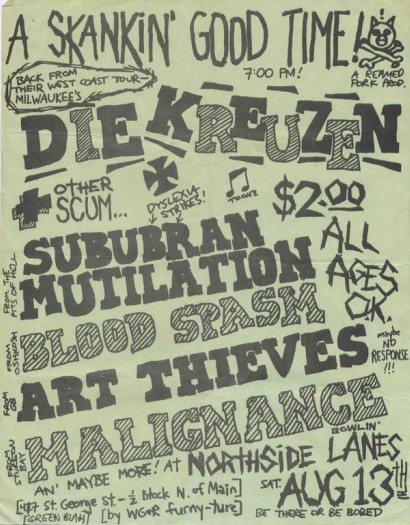 A SKANKIN' GOOD TIME!
7:00 PM!
A REAMED
PORK PROD.
BACK FROM
THEIR WEST COAST TOUR-
MILWAUKEE'S
DIE KREUZEN
+ OTHER
SCUM...
DYSLEXIA
STRIKES!
TOONZ
$2.00
ALL
AGES
OK.
FROM THE
PITS OF HELL
SUBUBRAN
MUTILATION
FROM
OSHKOSH
BLOOD SPASM
maybe
NO
RESPONSE
!!!
FROM
GB
ART THIEVES
FROM
GREEN
BAY
MALIGNANCE
AN' MAYBE MORE! AT NORTHSIDE
BOWLIN'
LANES
[437 St. George St. - ½ block N. of Main]
[GREEN BLAH] [by WG&R furny-ture]
SAT. AUG 13TH
BE THERE OR BE BORED